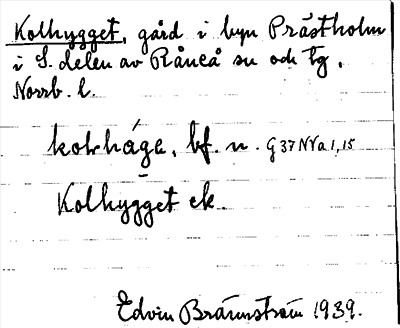 Kolhygget, gård i byn Prästholm
i S. delen av Råneå sn och tg,
Norrb. l.
bf. n. G 37 N Va 1, 15
Kolhygget ek.
Edvin Brännström 1939.